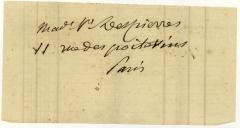 Made Ve Despierres
11 rue des poitevins
Paris